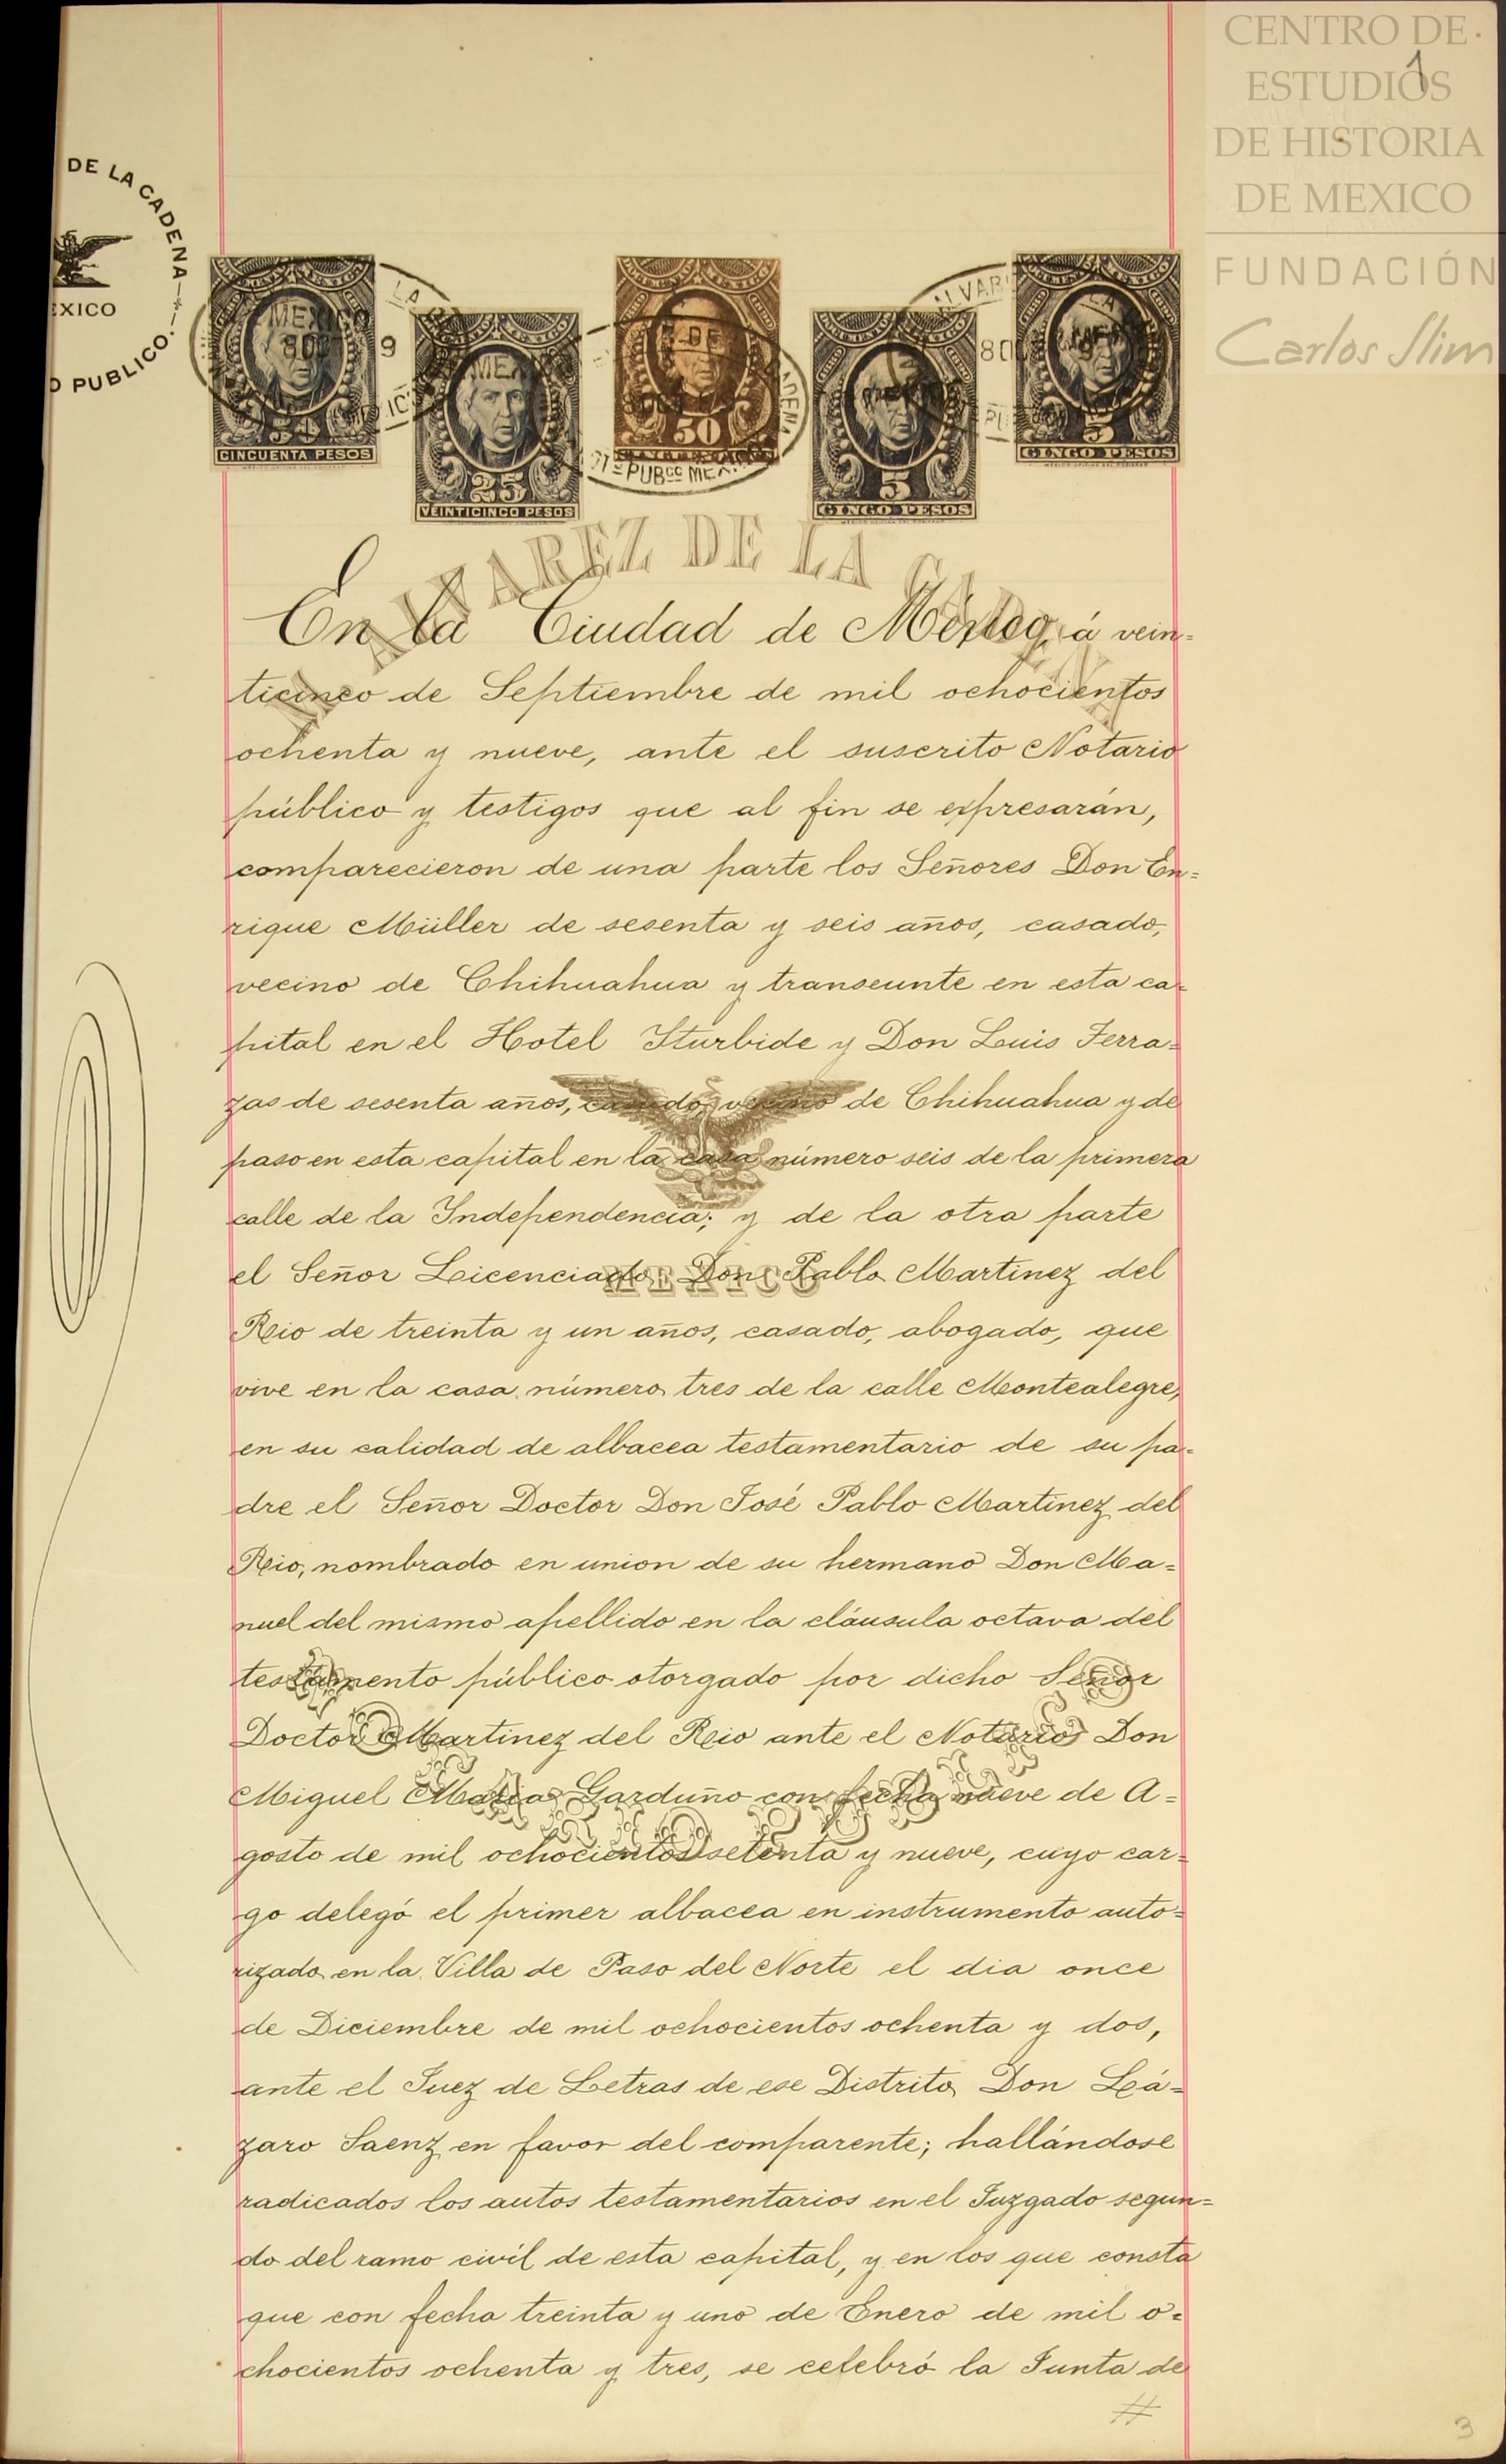 CENTRO DE
ESTUDIOS
DE HISTORIA
DE MEXICO
FUNDACIÓN
Carlos Slim
1
DE LA CADENA
EXICO
O PUBLICO.
MEXICO
9
CINCUENTA PESOS
MEX
25
VEINTICINCO PESOS
DE
50
PUBCO MEX
5
CINCO PESOS
ALVAR
80
LA
5
CINCO PESOS
ALVAREZ DE LA CADENA
En la Ciudad de México, á vein=
ticinco de Septiembre de mil ochocientos
ochenta y nueve, ante el suscrito Notario
público y testigos que al fin se expresarán,
comparecieron de una parte los Señores Don En=
rique Müller de sesenta y seis años, casado,
vecino de Chihuahua y transeunte en esta ca=
pital en el Hotel Iturbide y Don Luis Terra=
zas de sesenta años, casado, vecino de Chihuahua y de
paso en esta capital en la casa número seis de la primera
calle de la Independencia; y de la otra parte
el Señor Licenciado Don Pablo Martinez del
Rio de treinta y un años, casado, abogado, que
vive en la casa número tres de la calle Montealegre,
en su calidad de albacea testamentario de su pa=
dre el Señor Doctor Don José Pablo Martinez del
Rio, nombrado en union de su hermano Don Ma=
nuel del mismo apellido en la cláusula octava del
testamento público otorgado por dicho Señor
Doctor Martinez del Rio ante el Notario Don
Miguel Maria Garduño con fecha nueve de A=
gosto de mil ochocientos setenta y nueve, cuyo car=
go delegó el primer albacea en instrumento auto=
rizado en la Villa de Paso del Norte el dia once
de Diciembre de mil ochocientos ochenta y dos,
ante el Juez de Letras de ese Distrito Don Lá=
zaro Saenz en favor del comparente; hallándose
radicados los autos testamentarios en el Juzgado segun=
do del ramo civíl de esta capital, y en los que consta
que con fecha treinta y uno de Enero de mil o=
chocientos ochenta y tres, se celebró la Junta de
MEXICO
3